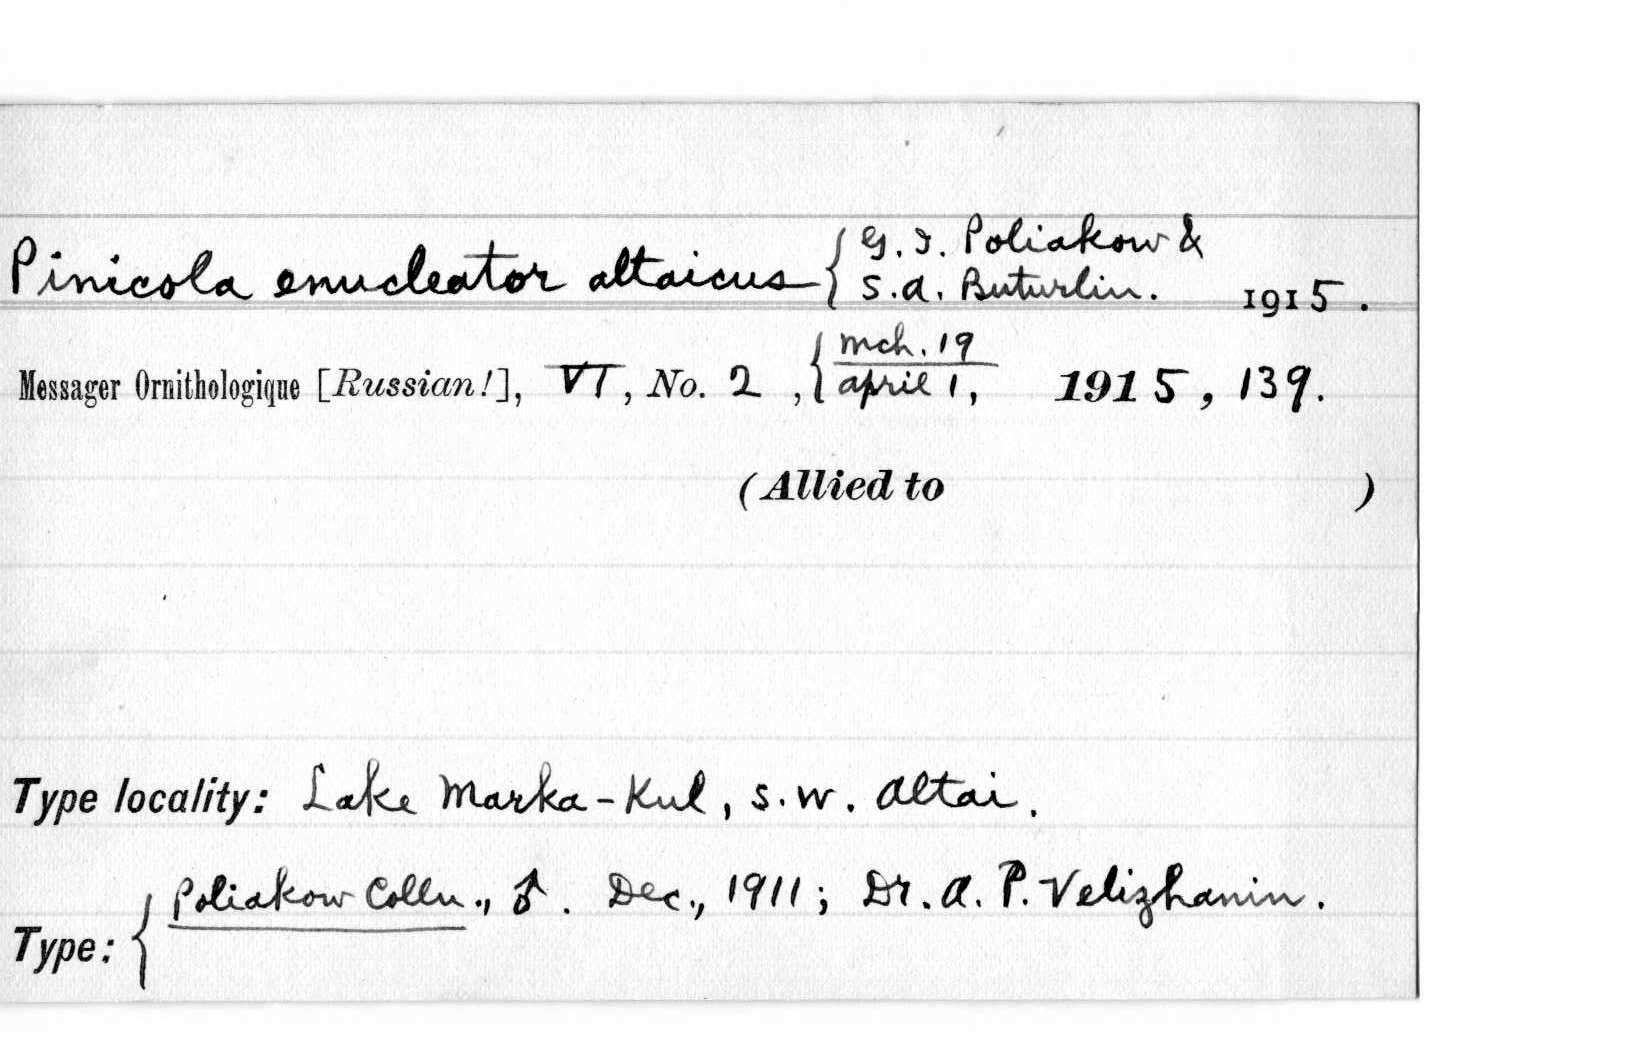 Pinicola enucleator altaicus { G. I. Poliakow & S. A. Buturlin. 1915.
Messager Ornithologique [Russian!], VI, No. 2, { mch. 19 / april 1, 1915, 139.
(Allied to )
Type locality: Lake Marka-Kul, S.W. Altai.
Type: { Poliakow Colln., ♂. Dec., 1911; Dr. A. P. Velizhanin.